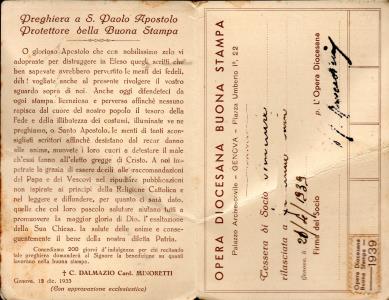 Preghiera a S. Paolo Apostolo
Protettore della Buona Stampa
O glorioso Apostolo che con nobilissimo zelo vi
adopraste per distruggere in Efeso quegli scritti che
ben sapevate avrebbero pervertito le menti dei fedeli,
deh! vogliate anche al presente rivolgere il vostro
sguardo sopra di noi. Anche oggi difendeteci da
ogni stampa licenziosa e perversa affinchè nessuno
rapisca dal cuore del nostro popolo il tesoro della
Fede e della illibatezza dei costumi, illuminate ve ne
preghiamo, o Santo Apostolo, le menti di tanti scon-
sigliati scrittori affinchè desistano dal recar danno
alle anime, muovete i loro cuori a detestare il male
ch'essi fanno all'eletto gregge di Cristo. A noi im-
petrate la grazia di essere docili alle raccomandazioni
del Papa e dei Vescovi nel ripudiare pubblicazioni
non ispirate ai principi della Religione Cattolica e
nel leggere e diffondere, per quanto ci sarà dato,
quelle che col loro pascolo salutare aiutano tutti a
promuovere la maggior gloria di Dio, l'esaltazione
della Sua Chiesa, la salute delle anime e conse-
guentemente il bene della nostra diletta Patria.
Concediamo 200 giorni d'indulgenza per chi recitando
tale preghiera domanderà al Signore la benedizione su quanti
lavorano nella buona stampa.
† C. DALMAZIO Card. MINORETTI
Genova, 18 dic. 1935
(Con approvazione ecclesiastica)
OPERA DIOCESANA BUONA STAMPA
Palazzo Arcivescovile - GENOVA - Piazza Umberto I°, 22
Tessera di Socio
rilasciata a
Genova, il 20/4 1939
Firma del Socio
p. L'Opera Diocesana
Opera Diocesana
Buona Stampa
1939